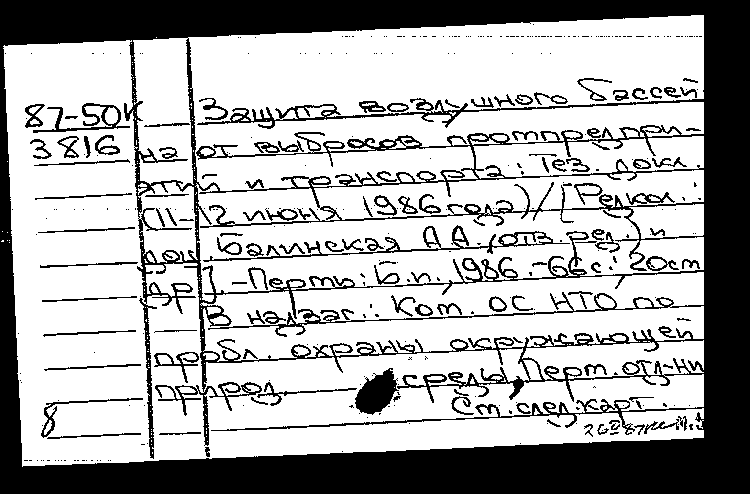 87-50К Защита воздушного бассей
3816 на от выбросов промпредпри-
ятий и транспорта: Тез. докл.
(11-12 июня 1986 года) / [Редкол.:
доц. Балинская А А. (отв. ред.) и
др]. - Пермь: Б.и., 1986. - 66 с.: 20см
В надзаг.: Ком. ОС НТО по
пробл. охраны окружающей
природ. среды, Перм. отд-ни
8 См. след. карт.